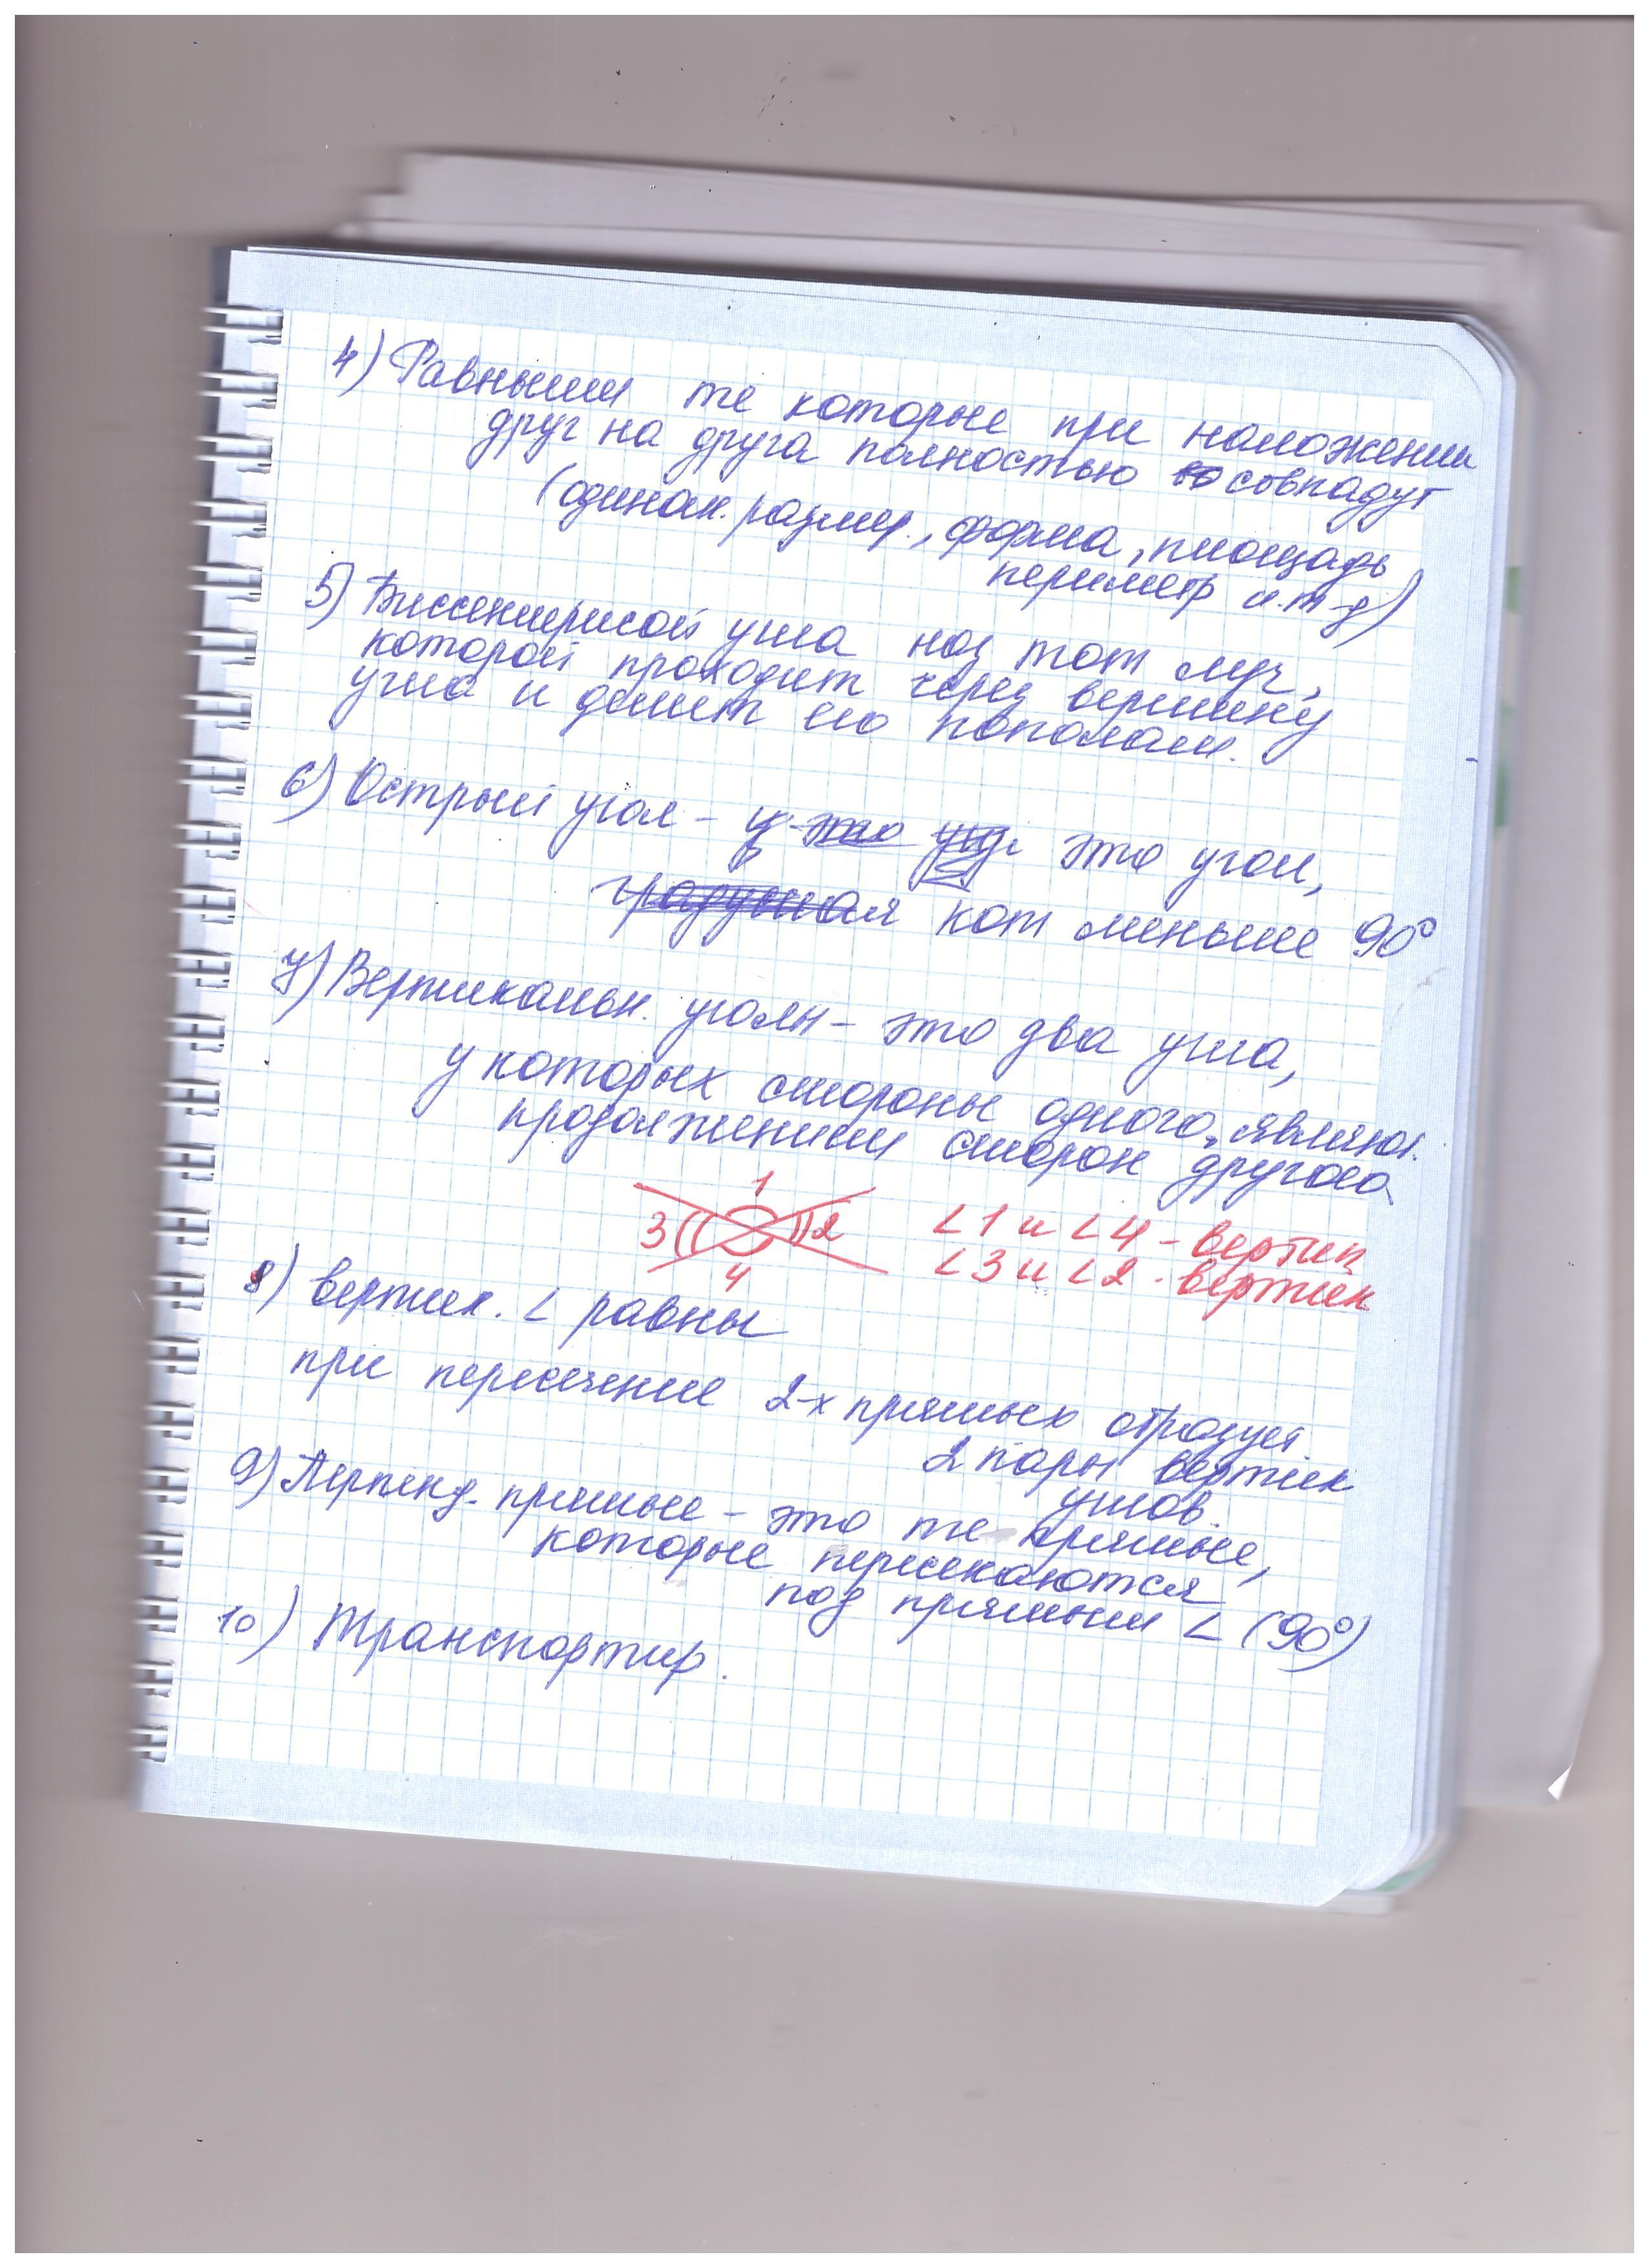 4) Равными те которые при наложении
друг на друга полностью совпадут
(одинак. размер., форма, площадь
периметр и.т-д)
5) Биссектрисой угла наз тот луч,
которой проходит через вершину
угла и делит его пополам.
6) Острый угол - это угол,
кот меньше 90°
7) Вертикальн. уголы - это два угла,
у которых стороны одного, являют.
продолжением сторон другого
1
3 2
4
∠1 и ∠4 - вертик
∠3 и ∠2 - вертик
8) вертик. ∠ равны
при пересечение 2-х прямых образует.
2 пары вертик
углов.
9) Перпенд. прямые - это те прямые,
которые пересекаются
под прямым ∠ (90°)
10) Транспортир.